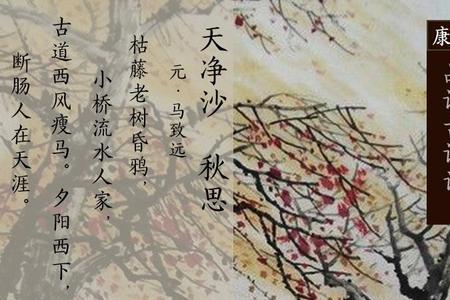 康
天净沙 秋思
元·马致远
枯藤老树昏鸦，
小桥流水人家，
古道西风瘦马。夕阳西下，
断肠人在天涯。